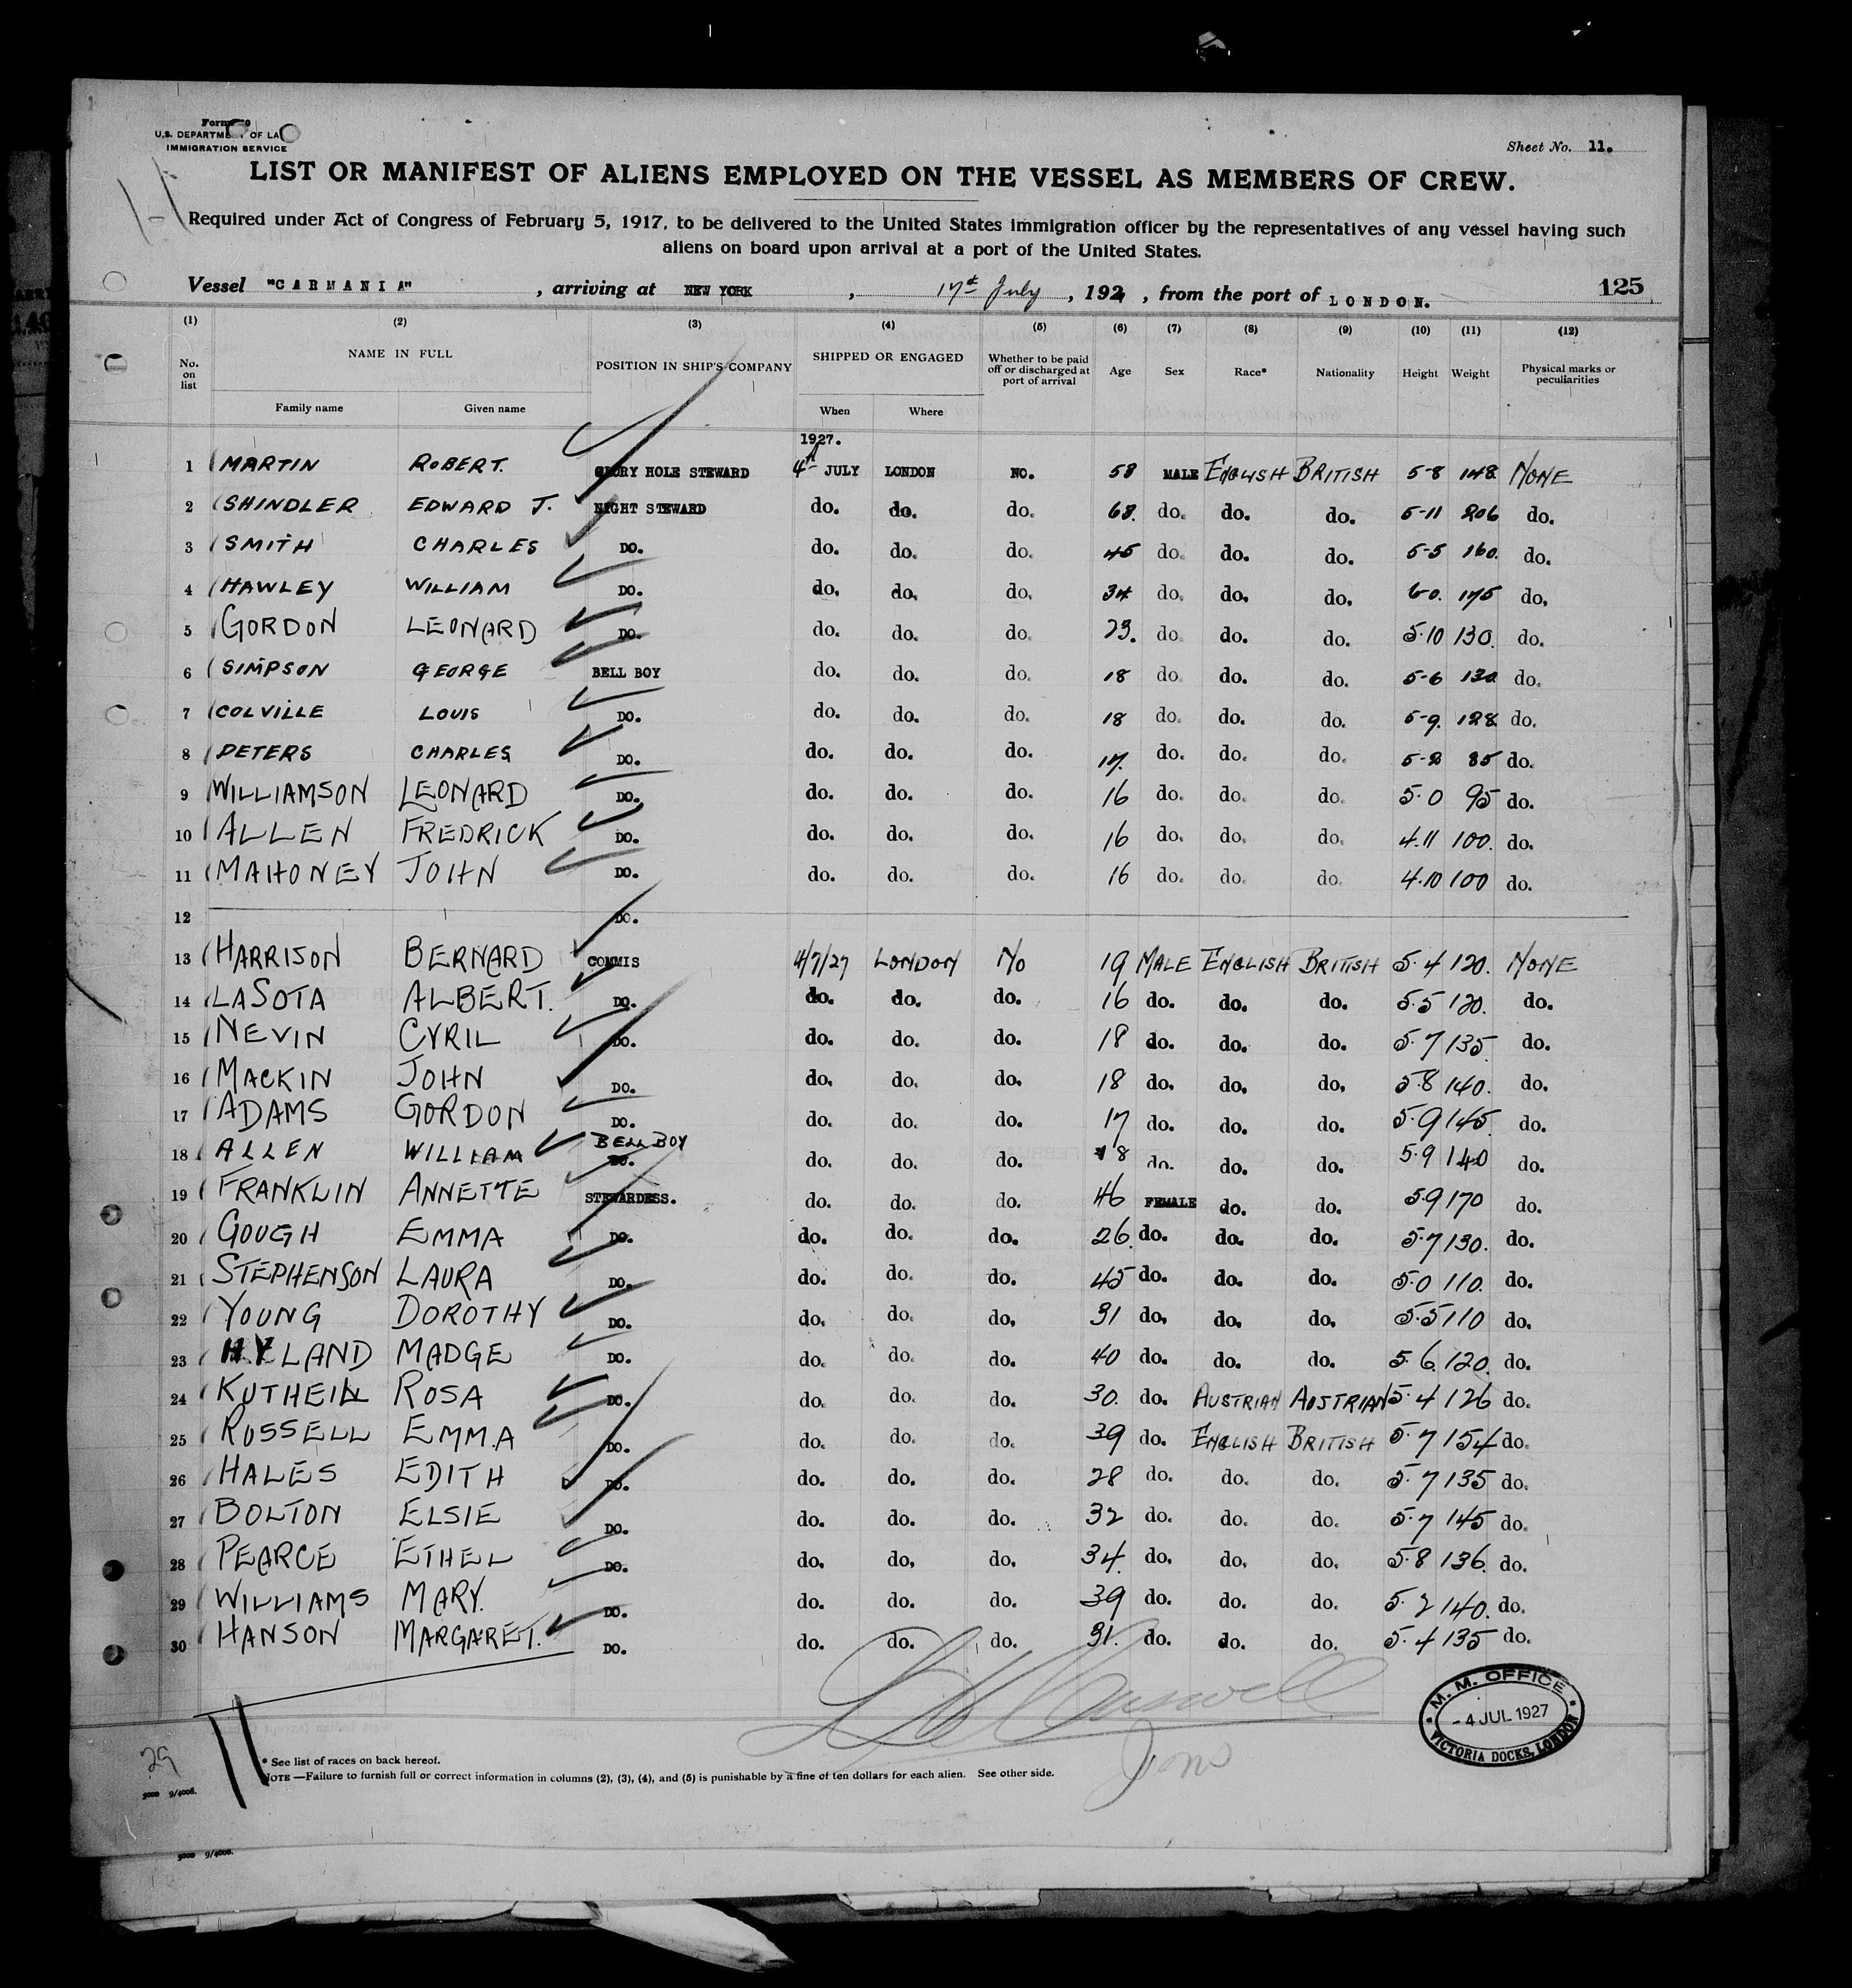 U.S. DEPARTMENT OF LA
IMMIGRATION SERVICE
Sheet No. 11.
LIST OR MANIFEST OF ALIENS EMPLOYED ON THE VESSEL AS MEMBERS OF CREW.
Required under Act of Congress of February 5, 1917, to be delivered to the United States immigration officer by the representatives of any vessel having such
aliens on board upon arrival at a port of the United States.
Vessel "CARMANIA", arriving at NEW YORK, 17th July, 1927, from the port of LONDON. 125
(1) (2) (3) (4) (5) (6) (7) (8) (9) (10) (11) (12)
No. on list NAME IN FULL POSITION IN SHIP'S COMPANY SHIPPED OR ENGAGED Whether to be paid off or discharged at port of arrival Age Sex Race* Nationality Height Weight Physical marks or peculiarities
Family name Given name When Where
1927.
1 MARTIN ROBERT. GLORY HOLE STEWARD 4th JULY LONDON NO. 58 MALE ENGLISH BRITISH 5-8 148 NONE
2 SHINDLER EDWARD J. NIGHT STEWARD do. do. do. 68. do. do. do. 5-11 206 do.
3 SMITH CHARLES DO. do. do. do. 45 do. do. do. 5-5 160. do.
4 HAWLEY WILLIAM DO. do. do. do. 34 do. do. do. 6-0. 175 do.
5 GORDON LEONARD DO. do. do. do. 23. do. do. do. 5.10 130. do.
6 SIMPSON GEORGE BELL BOY do. do. do. 18 do. do. do. 5-6 130 do.
7 COLVILLE LOUIS DO. do. do. do. 18 do. do. do. 5-9. 128 do.
8 PETERS CHARLES DO. do. do. do. 17. do. do. do. 5-2 85 do.
9 WILLIAMSON LEONARD DO. do. do. do. 16 do. do. do. 5.0 95 do.
10 ALLEN FREDRICK DO. do. do. do. 16 do. do. do. 4.11 100. do.
11 MAHONEY JOHN DO. do. do. do. 16 do. do. do. 4.10 100 do.
12 DO.
13 HARRISON BERNARD COMMIS 4/7/27 LONDON NO 19 MALE ENGLISH BRITISH 5.4 120. NONE
14 LASOTA ALBERT. DO. do. do. do. 16 do. do. do. 5.5 120. do.
15 NEVIN CYRIL DO. do. do. do. 18 do. do. do. 5.7 135. do.
16 MACKIN JOHN DO. do. do. do. 18 do. do. do. 5.8 140. do.
17 ADAMS GORDON DO. do. do. do. 17 do. do. do. 5.9 145. do.
18 ALLEN WILLIAM BELL BOY DO. do. do. do. 18 do. do. do. 5.9 140 do.
19 FRANKLIN ANNETTE STEWARDESS. do. do. do. 46 FEMALE do. do. 5.9 170 do.
20 GOUGH EMMA DO. do. do. do. 26. do. do. do. 5.7 130. do.
21 STEPHENSON LAURA DO. do. do. do. 45 do. do. do. 5.0 110. do.
22 YOUNG DOROTHY DO. do. do. do. 31 do. do. do. 5.5 110 do.
23 HYLAND MADGE DO. do. do. do. 40 do. do. do. 5.6. 120. do.
24 KUTHEIL ROSA DO. do. do. do. 30. do. AUSTRIAN AUSTRIAN 5.4 126 do.
25 RUSSELL EMMA DO. do. do. do. 39 do. ENGLISH BRITISH 5.7 154 do.
26 HALES EDITH DO. do. do. do. 28 do. do. do. 5.7 135 do.
27 BOLTON ELSIE DO. do. do. do. 32 do. do. do. 5.7 145 do.
28 PEARCE ETHEL DO. do. do. do. 34. do. do. do. 5.8 136. do.
29 WILLIAMS MARY. DO. do. do. do. 39 do. do. do. 5.2 140. do.
30 HANSON MARGARET. DO. do. do. do. 31. do. do. do. 5.4 135 do.
M. M. OFFICE
-4 JUL 1927
VICTORIA DOCKS, LONDON
29
* See list of races on back hereof.
NOTE—Failure to furnish full or correct information in columns (2), (3), (4), and (5) is punishable by a fine of ten dollars for each alien. See other side.
5000 9/4008.
5000 9/4008.